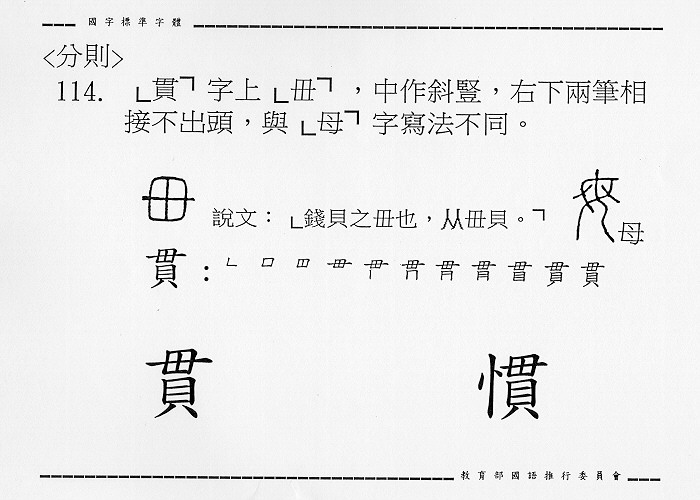 國字標準字體
<分則>
114. ﹂貫﹁字上﹂毌﹁，中作斜豎，右下兩筆相
接不出頭，與﹂母﹁字寫法不同。
說文：﹂錢貝之毌也，从毌貝。﹁
母
貫：
貫 慣
教育部國語推行委員會